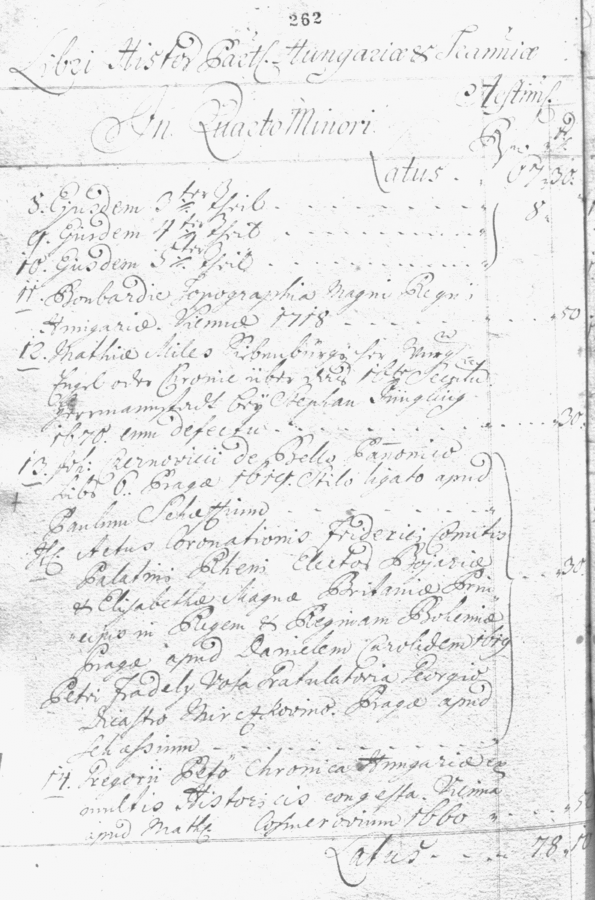 262
Libri Histor Parts. Hungariæ &
Æstim.
In Quarto Minori.
Latus . 67 30.
8. Ejusdem 3ter Theil
8
9. Ejusdem 4ter Theil
10. Ejusdem 5ter Theil
11. Bonbardie Topographia Magni Regni
Hungariæ. Viennæ 1718 50
12. Mathiæ Miles Siebenbürgischer Würg
Engel oder Chronic über das 15te Seculi
Herrmannstadt bey Stephan Jüngling
1670. cum defectu 30
13. Joh: Bernovicii de Bello Pañonico
Libr 6. Pragæ 1619. Stilo ligato apud
Paulum
It Actus Coronationis Friderici Comitis
Palatini Rheni Elector Bojariæ 30
& Elisabethæ Magnæ Britaniæ Prin
cipis in Regem & Reginam Bohemiæ
Pragæ apud Danielem Carolidem 1619
Petri Fradely Vota Gratulatoria Georgio
Dicastro Pragæ apud
14. Gregorii Pető Chronica Hungariæ ex
multis Historicis congesta. Viennæ
apud Math. Cosmerovium 1660 50
Latus 78. 10